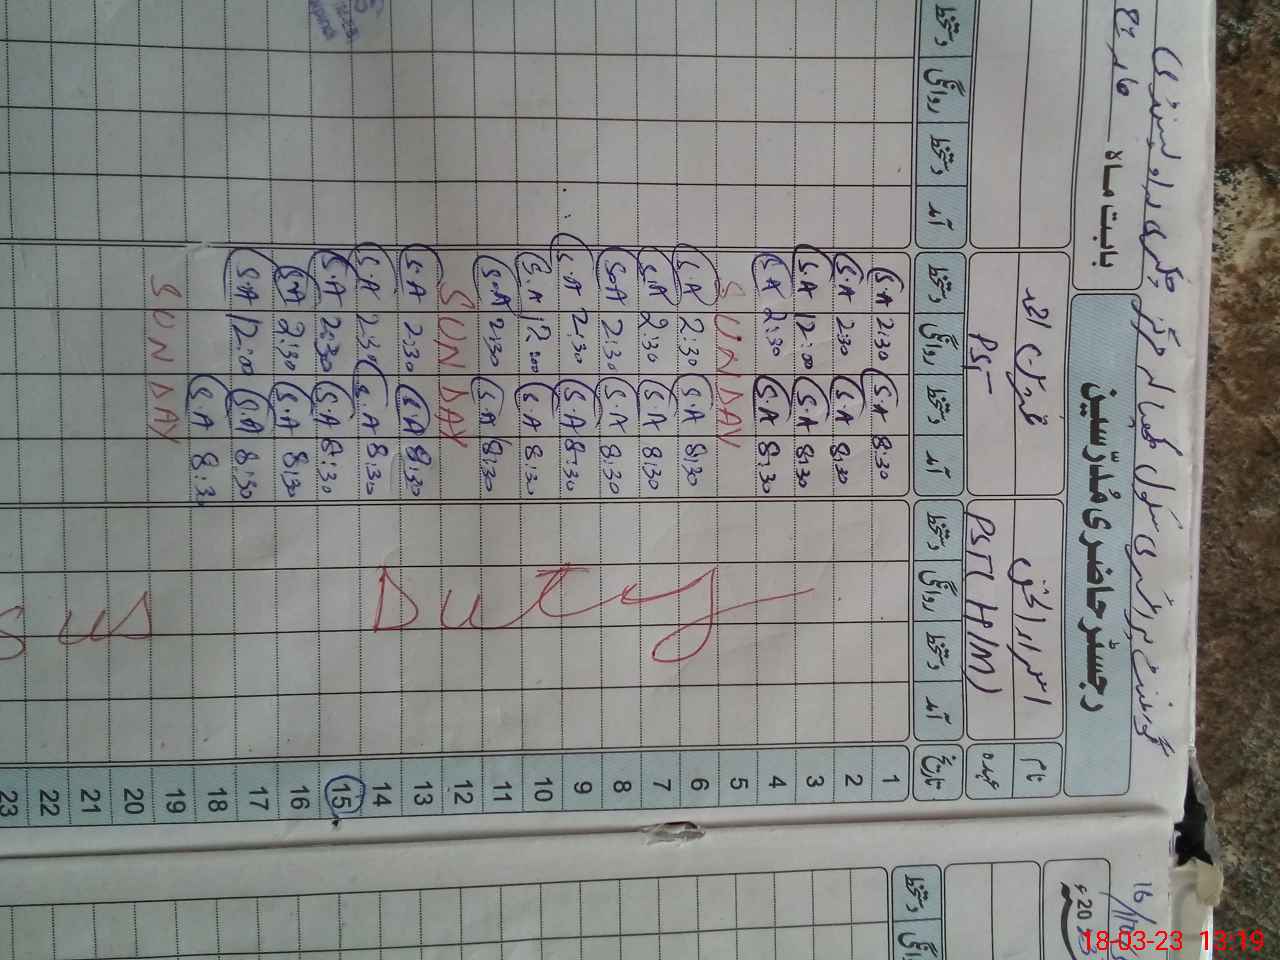 گورنمنٹ پرائمری سکول مرکز چکری راولپنڈی
رجسٹر حاضری مُدرّسین بابت ماہ مارچ
20ء
نام اسرار الحق احمد
عہدہ PST(H/M) PST
تاریخ آمد دستخط روانگی دستخط آمد دستخط روانگی دستخط آمد دستخط روانگی دستخط
1 8:30 S.A 2:30 S.A
2 8:30 S.A 2:30 S.A
3 8:30 S.A 12:00 S.A
4 8:30 S.A 2:30 S.A
5 SUNDAY
6 8:30 S.A 2:30 S.A
7 8:30 S.A 2:30 S.A
8 8:30 S.A 2:30 S.A
9 8:30 S.A 2:30 S.A
10 8:30 S.A 12:00 S.A
11 8:30 S.A 2:30 S.A
12 SUNDAY
13 8:30 S.A 2:30 S.A
14 8:30 S.A 2:30 S.A
15 8:30 S.A 2:30 S.A
16 8:30 S.A 2:30 S.A
17 8:30 S.A 12:00 S.A
18 8:30 S.A
19 SUNDAY
20
21
22
23
Duty
دستخط روانگی
18-03-23 13:19